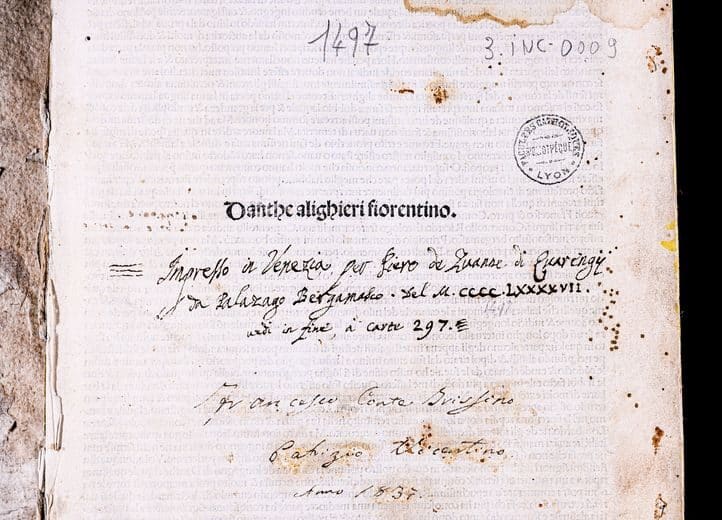 1497
3.INC-0009
FACULTES CATHOLIQUES
BIBLIOTHEQUE
LYON
Danthe alighieri fiorentino.
Impresso in Venezia per Piero de Zuanne di Quarengij
da Palazago Bergamasco. Del M. CCCC. LXXXXVII.
vedi in fine, à carte 297.
Francesco Conte Brissino
Patrizio Vicentino
Anno 1837.